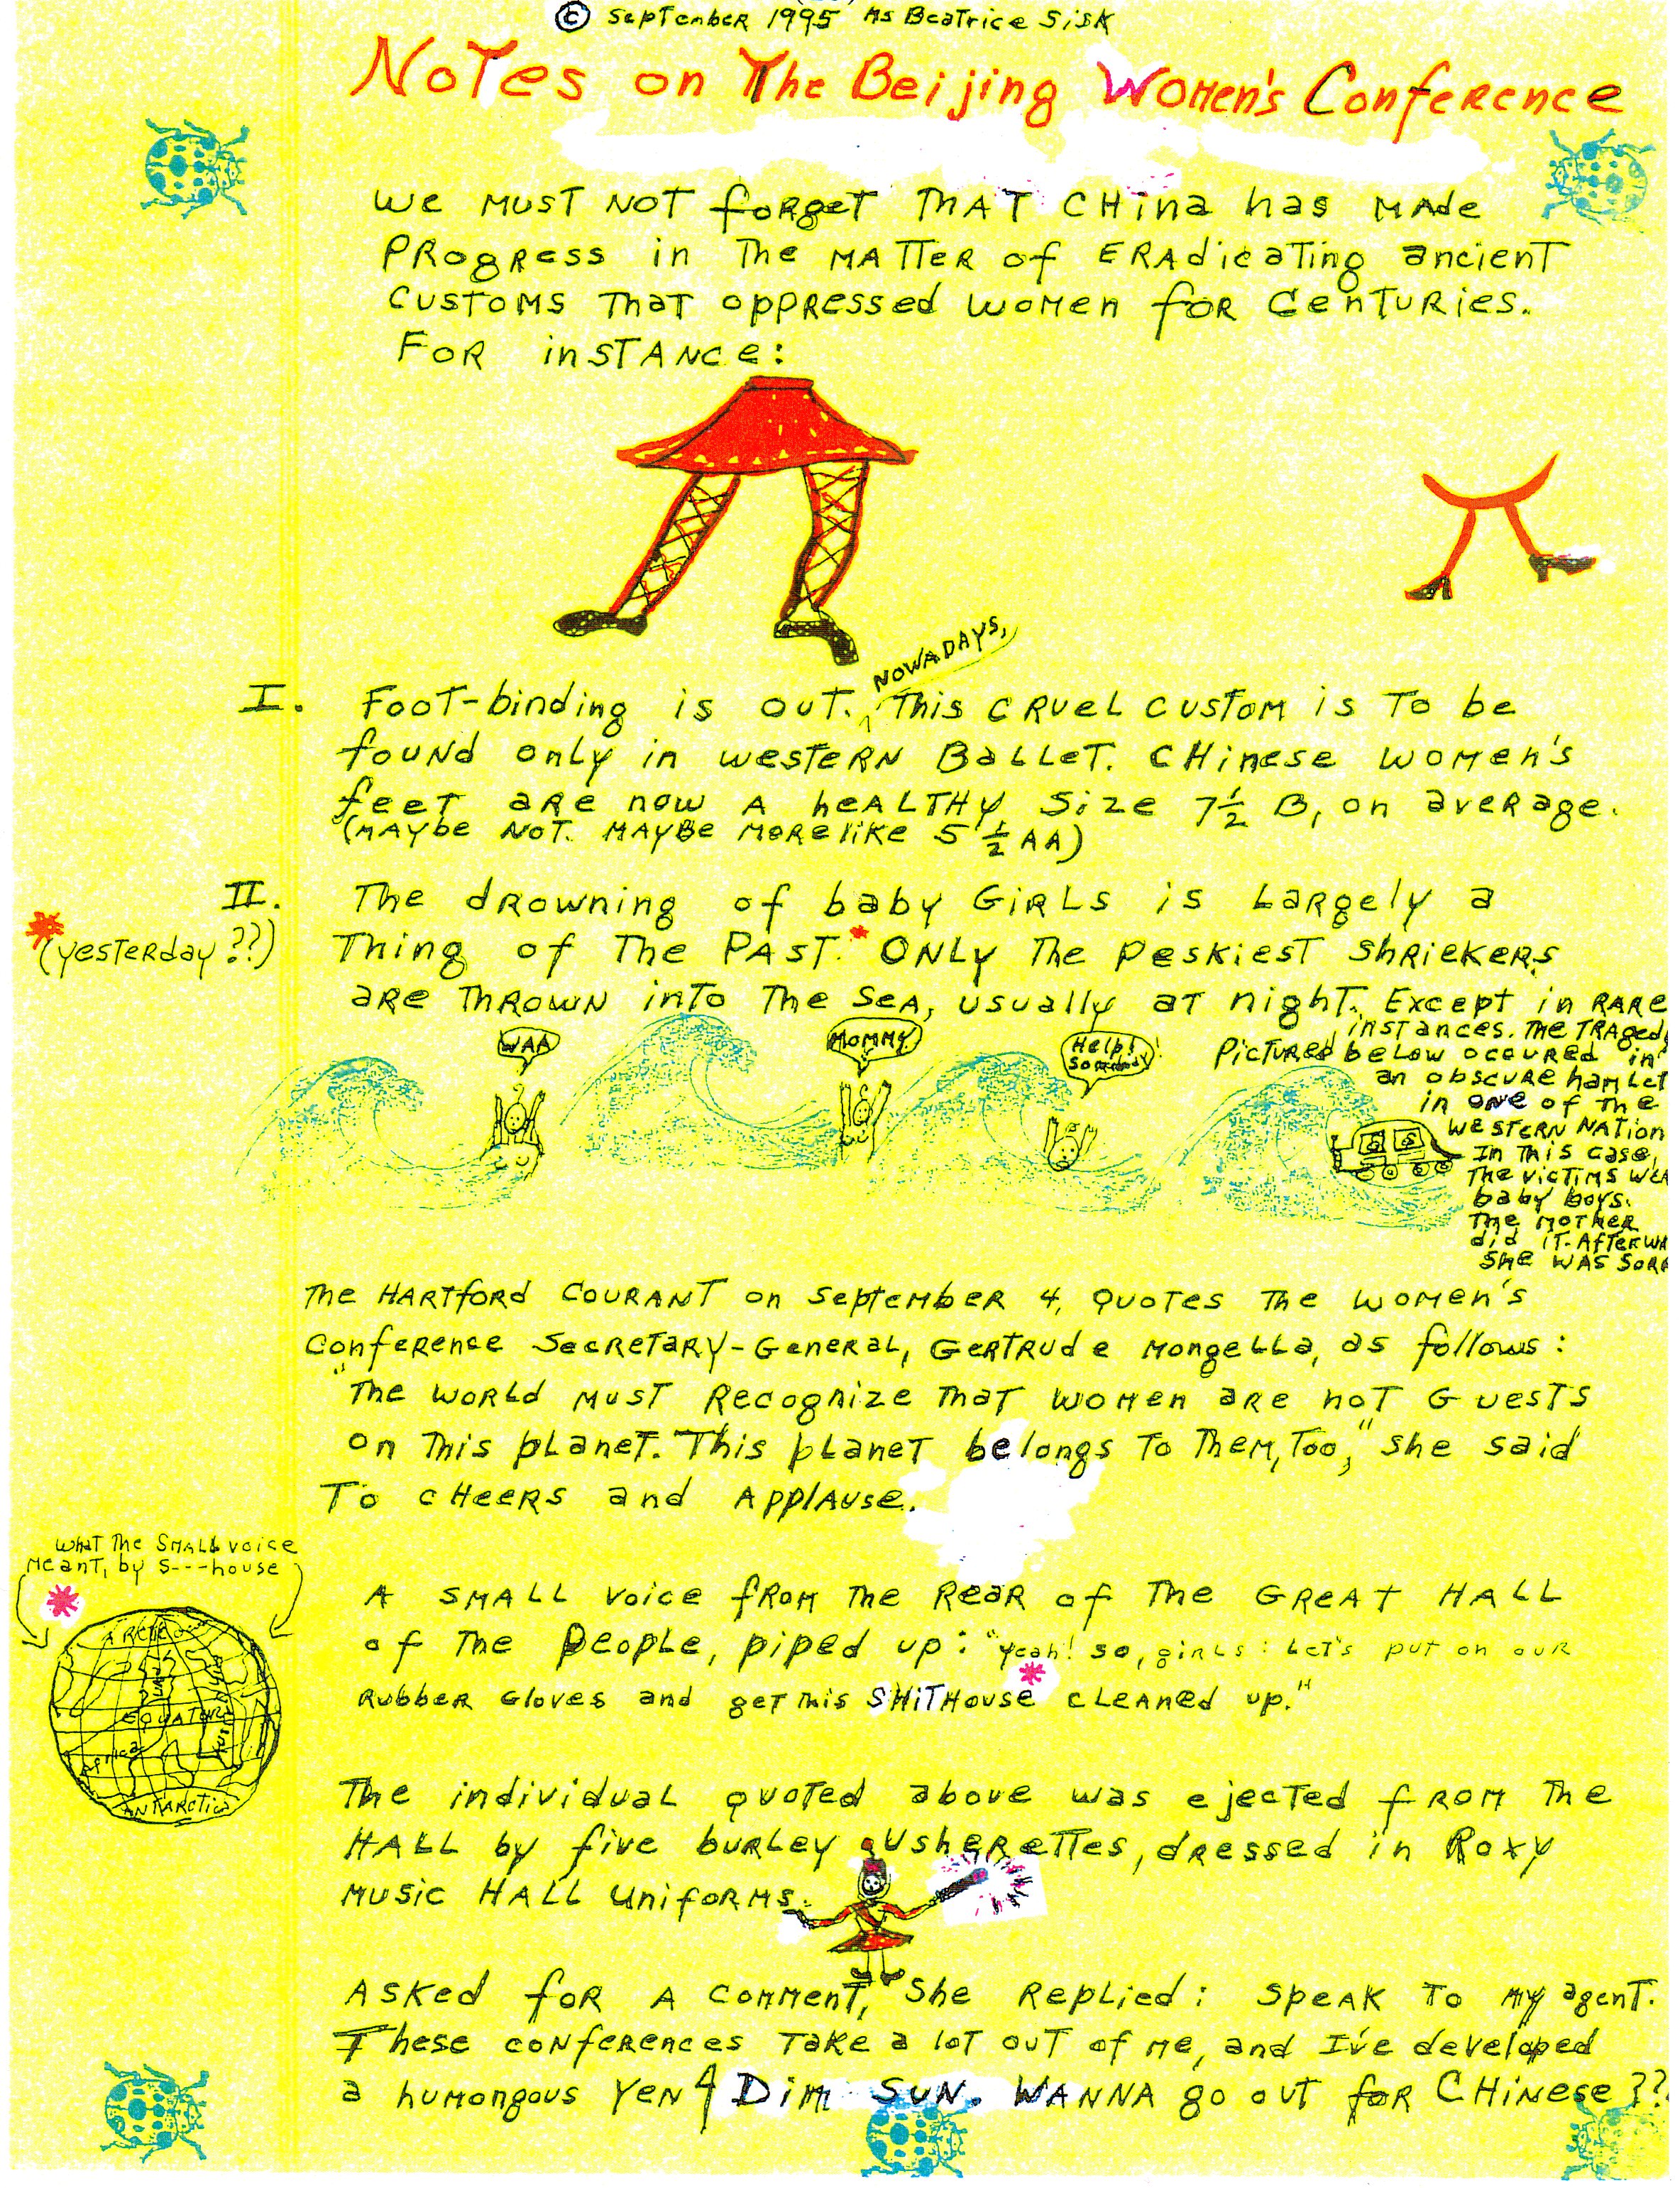 © September 1995 Ms Beatrice Sisk
Notes on The Beijing Women's Conference
We must not forget that China has made
progress in the matter of eradicating ancient
customs that oppressed women for centuries.
For instance:
Nowadays,
I. Foot-binding is out. This cruel custom is to be
found only in western Ballet. Chinese women's
feet are now a healthy size 7 1/2 B, on average.
(Maybe not. Maybe more like 5 1/2 AA)
II. The drowning of baby girls is largely a
* (yesterday??)
thing of the past.* Only the peskiest shriekers
are thrown into the sea, usually at night. Except in rare
instances. The tragedy
pictured below occured in
an obscure hamlet
in one of the
western nation
In this case,
the victims wer
baby boys.
The mother
did it. Afterwa
she was sorr
WAA
Mommy
Help! Somebody!
The Hartford Courant on September 4, quotes the women's
Conference Secretary-General, Gertrude Mongella, as follows:
"The world must recognize that women are not guests
on this planet. This planet belongs to them, too," she said
to cheers and applause.
What the small voice
meant, by S---house
*
ARCTIC
EQUATOR
Africa
ANTARCTICA
A small voice from the rear of the Great Hall
of the People, piped up: "Yeah! So, girls: Let's put on our
rubber gloves and get this SHITHouse* cleaned up."
The individual quoted above was ejected from the
Hall by five burley usherettes, dressed in Roxy
Music Hall uniforms.
Asked for a comment, she replied: Speak to my agent.
These conferences take a lot out of me, and I've developed
a humongous yen 4 Dim Sun. Wanna go out for Chinese??